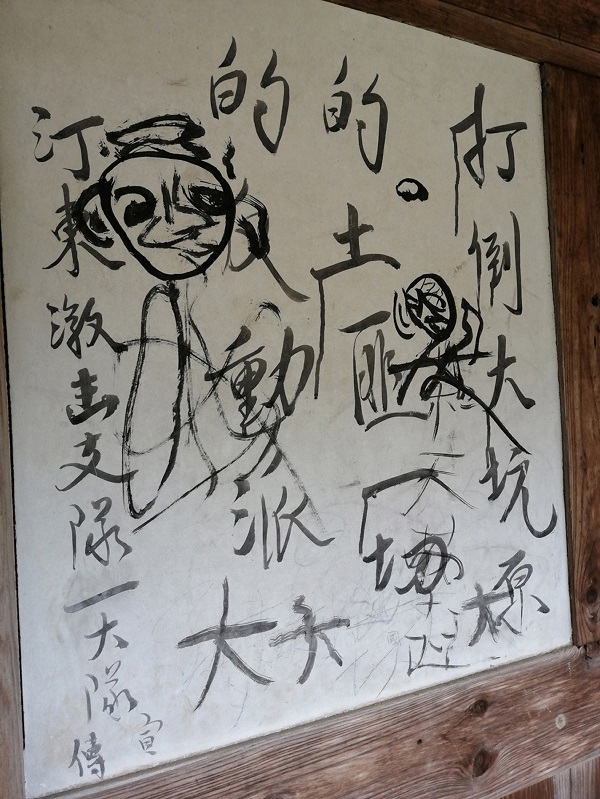 打倒大坑原
的土匪一
的反動派大头
汀東激击支隊一大隊宣傳